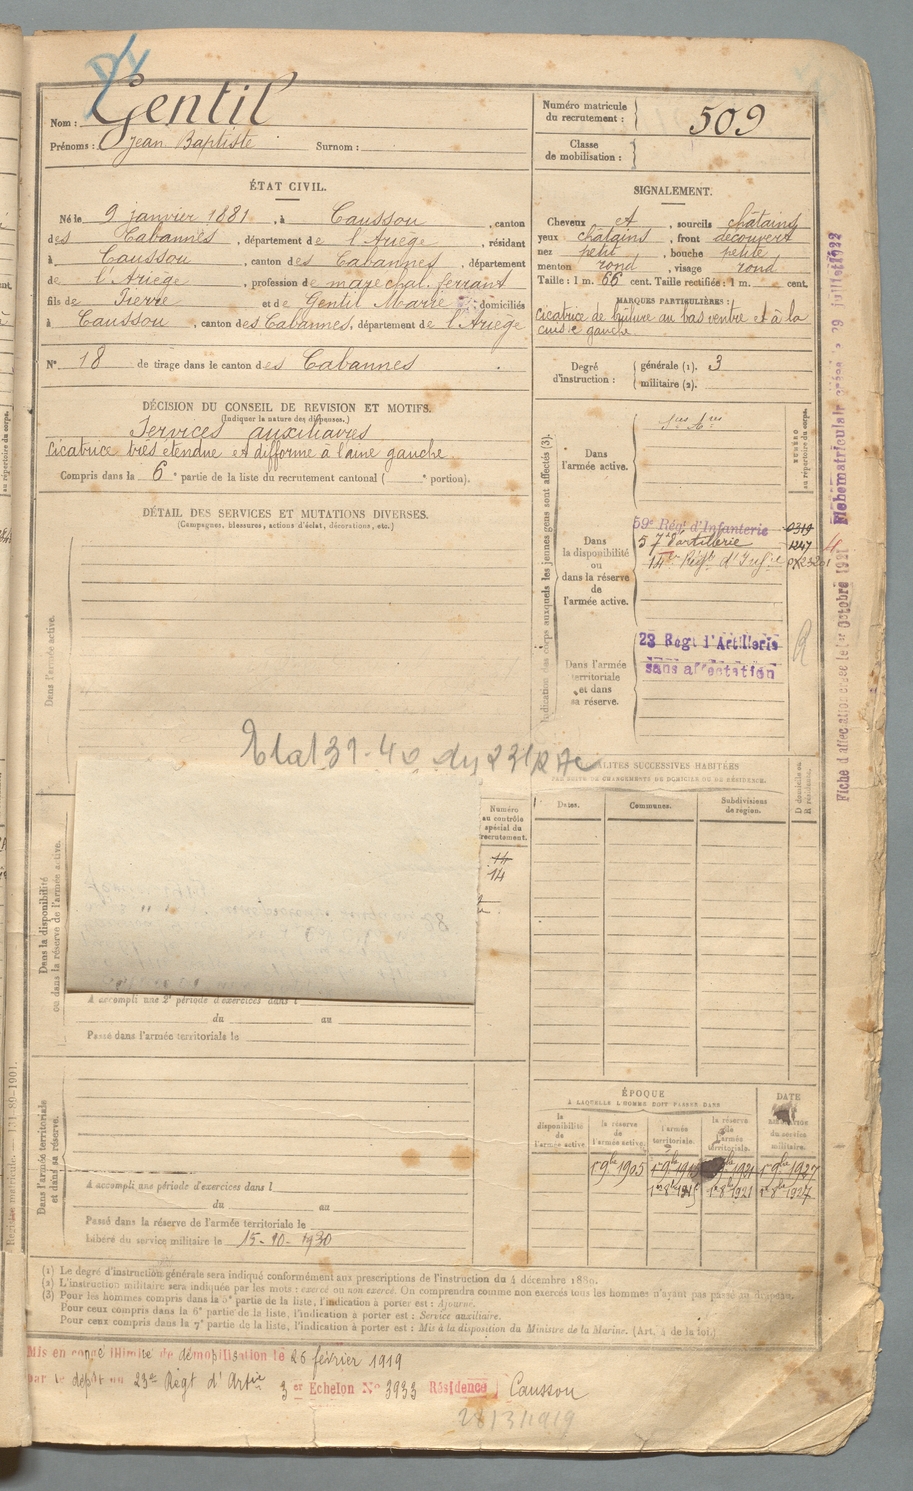 Nom : Gentil
Prénoms : Jean Baptiste Surnom :
Numéro matricule
du recrutement : 509
Classe
de mobilisation :
ÉTAT CIVIL.
Né le 9 janvier 1881, à Caussou, canton
des Cabannes, département de l'Ariège, résidant
à Caussou, canton des Cabannes, département
de l'Ariège, profession de maréchal ferrant
fils de Pierre et de Gentil Marie domiciliés
à Caussou, canton des Cabannes, département de l'Ariège
N° 18 de tirage dans le canton des Cabannes.
SIGNALEMENT.
Cheveux et, sourcils châtains
yeux châtains, front découvert
nez petit, bouche petite
menton rond, visage rond
Taille : 1 m. 66 cent. Taille rectifiée : 1 m. cent.
MARQUES PARTICULIÈRES :
Cicatrice de brûlure au bas ventre et à la
cuisse gauche
Degré
d'instruction :
générale (1). 3
militaire (2).
DÉCISION DU CONSEIL DE REVISION ET MOTIFS.
(Indiquer la nature des dispenses.)
Services auxiliaires
Cicatrice très étendue et difforme à l'aine gauche.
Compris dans la 6e partie de la liste du recrutement cantonal ( e portion).
DÉTAIL DES SERVICES ET MUTATIONS DIVERSES.
(Campagnes, blessures, actions d'éclat, décorations, etc.)
Dans l'armée active.
Indication des corps auxquels les jeunes gens sont affectés (3).
NUMÉRO
au répertoire du corps.
Dans
l'armée active.
Dans
la disponibilité
ou
dans la réserve
de
l'armée active.
59e Régt d'Infanterie 0319
57 d'artillerie 1247
14e Régt d'Inf.ie
Dans l'armée
territoriale
et dans
sa réserve.
23 Régt d'Artillerie
sans affectation
R
Fiche d'affectation
1er Octobre 1921
Fiche matriculaire
29 juillet 1922
LOCALITÉS SUCCESSIVES HABITÉES
PAR SUITE DE CHANGEMENTS DE DOMICILE OU DE RÉSIDENCE.
Dates.
Communes.
Subdivisions
de région.
D domicile ou
R résidence.
Numéro
au contrôle
spécial du
recrutement.
14
14
Dans la disponibilité
ou dans la réserve de l'armée active.
A accompli une 2e période d'exercices dans l
du au
Passé dans l'armée territoriale le
Dans l'armée territoriale
et dans sa réserve.
A accompli une période d'exercices dans l
du au
Passé dans la réserve de l'armée territoriale le
Libéré du service militaire le 15-10-1930
ÉPOQUE
À LAQUELLE L'HOMME DOIT PASSER DANS
la
disponibilité
de
l'armée active.
la réserve
de
l'armée active.
l'armée
territoriale.
la réserve
de
l'armée
territoriale.
DATE
du service
militaire.
1er 9bre 1905 1er 9bre 1915 9bre 1921 1er 9bre 1927
1er 8bre 1915 1er 8bre 1921 1er 8bre 1927
Registre matricule.
(1) Le degré d'instruction générale sera indiqué conformément aux prescriptions de l'instruction du 4 décembre 1889.
(2) L'instruction militaire sera indiquée par les mots : exercé ou non exercé. On comprendra comme non exercés tous les hommes n'ayant pas passé au drapeau.
(3) Pour les hommes compris dans la 5e partie de la liste, l'indication à porter est : Ajourné.
Pour ceux compris dans la 6e partie de la liste, l'indication à porter est : Service auxiliaire.
Pour ceux compris dans la 7e partie de la liste, l'indication à porter est : Mis à la disposition du Ministre de la Marine. (Art. 4 de la loi.)
Mis en congé illimité de démobilisation le 26 février 1919
par le dépôt du 23e Régt d'Artie 3er Echelon No 3933 Résidence Caussou
28/3/1919